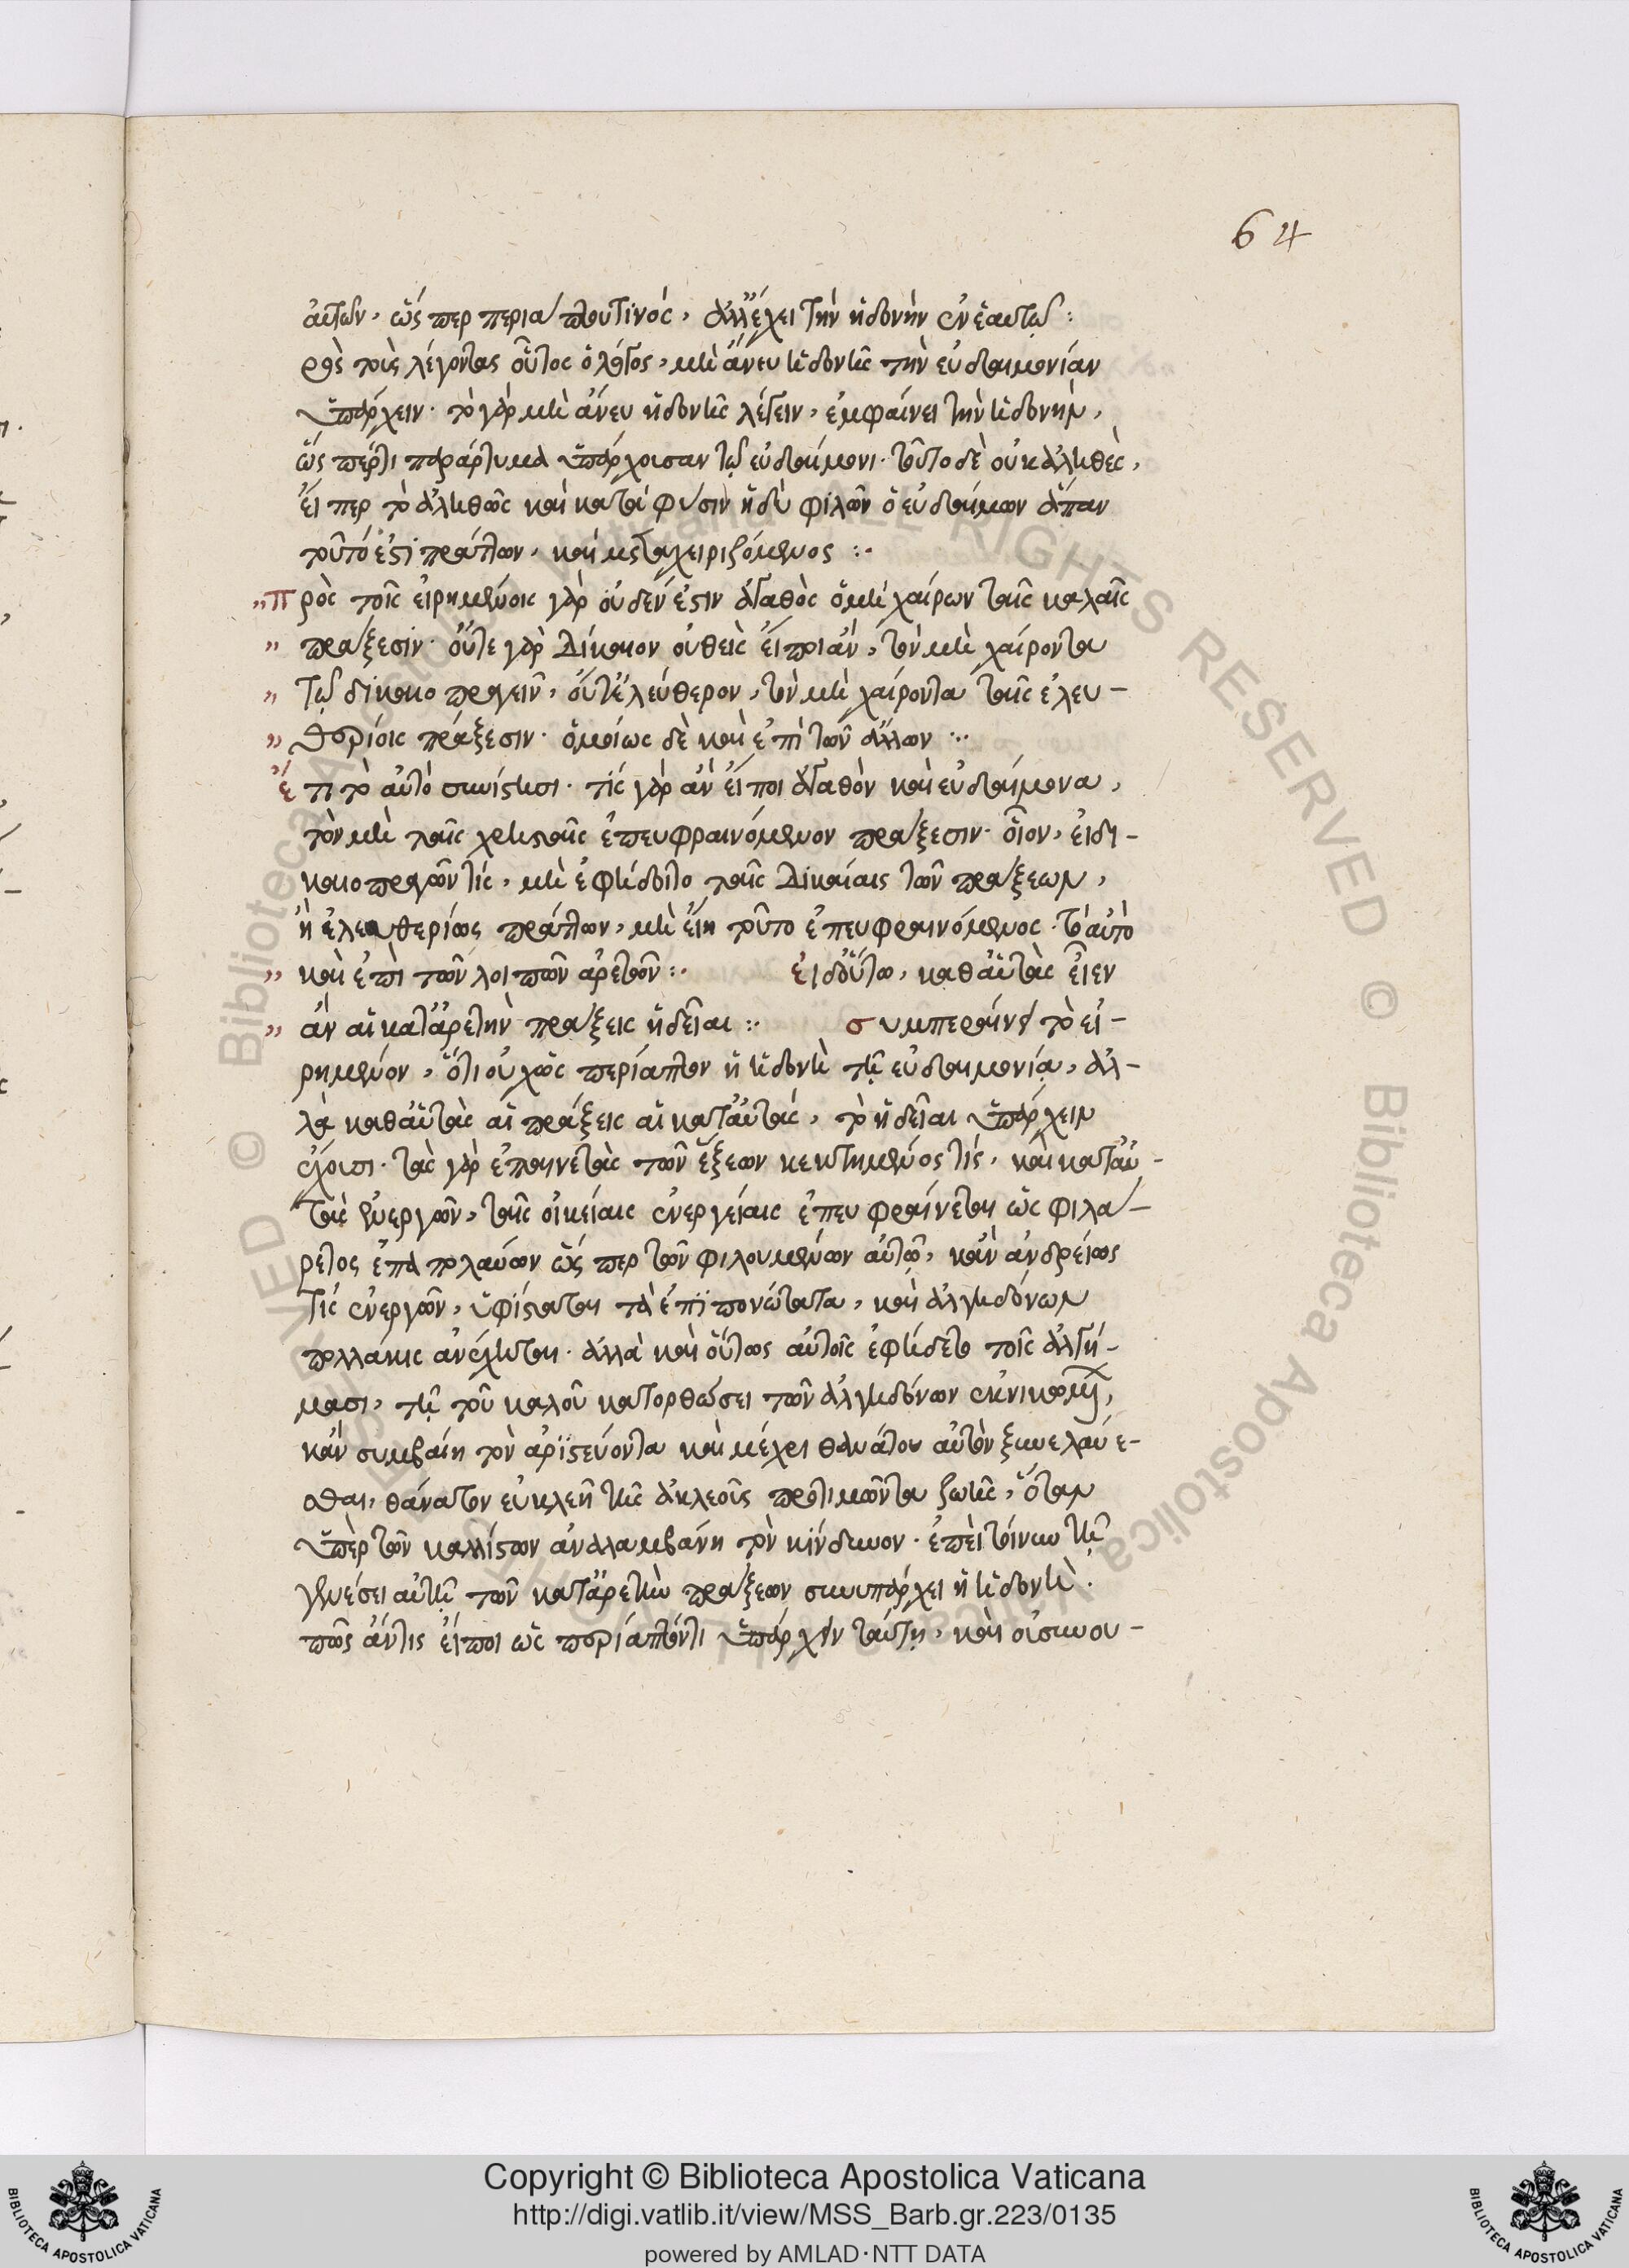 64
αὐτῶν, ὥς περ περιάπτου τινός, ἀλλ' ἔχει τὴν ἡδονὴν ἐν ἑαυτῷ:
πρὸς τοὺς λέγοντας οὗτος ὁ λόγος, μὴ ἄνευ ἡδονῆς τὴν εὐδαιμονίαν
ὑπάρχειν· τὸ γὰρ μὴ ἄνευ ἡδονῆς λέγειν, ἐμφαίνει τὴν ἡδονὴν,
ὥς περ τι παράρτυμα ὑπάρχουσαν τῷ εὐδαίμονι· τοῦτο δὲ οὐκ ἀληθὲς,
εἴ περ τὸ ἀληθῶς καὶ κατὰ φύσιν ἡδὺ φιλῶν ὁ εὐδαίμων ἅπαν
τοῦτό ἐστι πράττων, καὶ μεταχειριζόμενος :·
„Πρὸς τοῖς εἰρημένοις γὰρ οὐδέν ἐστιν ἀγαθὸς ὁ μὴ χαίρων ταῖς καλαῖς
„ πράξεσιν· οὔτε γὰρ δίκαιον οὐθεὶς εἴποι ἂν, τὸν μὴ χαίροντα
„ τῷ δικαιοπραγεῖν, οὔτ' ἐλεύθερον, τὸν μὴ χαίροντα ταῖς ἐλευ-
„ θερίοις πράξεσιν· ὁμοίως δὲ καὶ ἐπὶ τῶν ἄλλων :·
ἔτι τὸ αὐτὸ συνίστησι· τίς γὰρ ἂν εἴποι ἀγαθὸν καὶ εὐδαίμονα,
τὸν μὴ ταῖς χρησταῖς ἐπευφραινόμενον πράξεσιν· οἷον, εἰ δι-
καιοπραγῶν τὶς, μὴ ἐφήδοιτο ταῖς δικαίαις τῶν πράξεων,
ἢ ἐλευθερίως πράττων, μὴ εἴη τοῦτο ἐπευφραινόμενος· τὸ αὐτὸ
„ καὶ ἐπὶ τῶν λοιπῶν ἀρετῶν :· εἰ δ' οὕτω, καθ' αὑτὰς εἶεν
„ ἂν αἱ κατ' ἀρετὴν πράξεις ἡδεῖαι :· συμπεραίνει τὸ εἰ-
ρημένον, ὅτι οὐχ ὡς περίαπτον ἡ ἡδονὴ τῇ εὐδαιμονίᾳ, ἀλ-
λὰ καθ' αὑτὰς αἱ πράξεις αἱ κατ' αὐτὰς, τὸ ἡδεῖαι ὑπάρχειν
ἔχουσι· τὰς γὰρ ἐπαινετὰς τῶν ἕξεων κεκτημένος τὶς, καὶ κατ' αὐ-
τὰς ἐνεργῶν, ταῖς οἰκείαις ἐνεργείαις ἐπευφραίνεται ὡς φιλά-
ρετος ἐπαπολαύων ὥς περ τῶν φιλουμένων αὐτῷ, κἂν ἀνδρείως
τὶς ἐνεργῶν, ὑφίσταται τὰ ἐπιπονώτατα, καὶ ἀλγηδόνων
πολλάκις ἀνέχεται· ἀλλὰ καὶ οὕτως αὐτοῖς ἐφήδεται τοῖς ἀλγή-
μασι, τῇ τοῦ καλοῦ κατορθώσει τῶν ἀλγηδόνων
κἂν συμβαίη τὸν ἀριστεύοντα καὶ μέχρι θανάτου αὐτὸν ξυνελαύνε-
σθαι, θάνατον εὐκλεῆ τῆς ἀκλεοῦς προτιμῶντα ζωῆς, ὅταν
ὑπὲρ τῶν καλλίστων ἀναλαμβάνῃ τὸν κίνδυνον· ἐπεὶ τοίνυν τῇ
γενέσει αὐτῇ τῶν κατ' ἀρετὴν πράξεων συνυπάρχει ἡ ἡδονὴ·
πῶς ἄν τις εἴποι ὡς περίαπτόν τι ὑπάρχειν ταύτῃ, καὶ οἷς συνου-
Copyright © Biblioteca Apostolica Vaticana
http://digi.vatlib.it/view/MSS_Barb.gr.223/0135
powered by AMLAD·NTT DATA